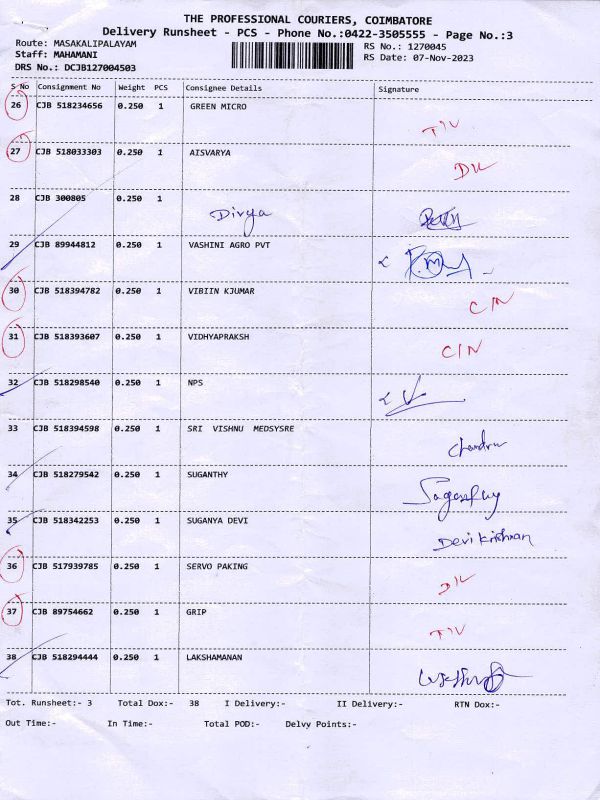 THE PROFESSIONAL COURIERS, COIMBATORE
Delivery Runsheet - PCS - Phone No.:0422-3505555 - Page No.:3
Route: MASAKALIPALAYAM RS No.: 1270045
Staff: MAHAMANI RS Date: 07-Nov-2023
DRS No.: DCJB127004503
S No Consignment No Weight PCS Consignee Details Signature
26 CJB 518234656 0.250 1 GREEN MICRO
27 CJB 518033303 0.250 1 AISVARYA DL
28 CJB 300805 0.250 1 Divya
29 CJB 89944812 0.250 1 VASHINI AGRO PVT
30 CJB 518394782 0.250 1 VIBIIN KJUMAR C/N
31 CJB 518393607 0.250 1 VIDHYAPRAKSH C/N
32 CJB 518298540 0.250 1 NPS
33 CJB 518394598 0.250 1 SRI VISHNU MEDSYSRE Chandru
34 CJB 518279542 0.250 1 SUGANTHY
35 CJB 518342253 0.250 1 SUGANYA DEVI Devi Krishnan
36 CJB 517939785 0.250 1 SERVO PAKING D/L
37 CJB 89754662 0.250 1 GRIP
38 CJB 518294444 0.250 1 LAKSHAMANAN
Tot. Runsheet:- 3 Total Dox:- 38 I Delivery:- II Delivery:- RTN Dox:-
Out Time:- In Time:- Total POD:- Delvy Points:-